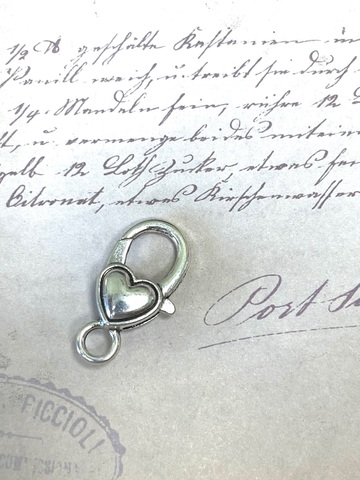 1/2 ℔ geschälte Kastanien in
Vanill weich, u. treibt sie durch
1/4 Mandeln fein, rühre 12
t, u. vermenge beides mitein
gelb 12 Loth Zucker, etwas fei
Citronat, etwas Kirschenwasser
Port
PICCIOLI